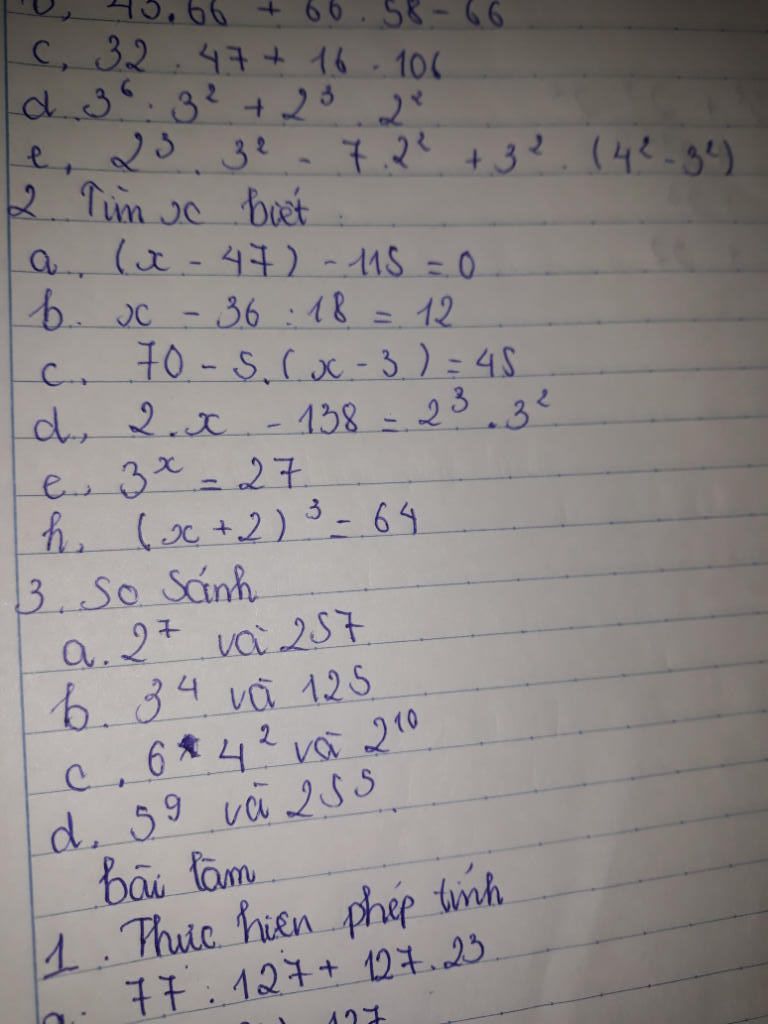 43.66 + 66.58 - 66
c, 32 . 47 + 16 . 106
d. 3⁶ : 3² + 2³ . 2²
e, 2³ . 3² - 7.2² + 3² . (4² - 3²)
2. Tìm x biết
a. (x - 47) - 115 = 0
b. x - 36 : 18 = 12
c. 70 - 5.(x - 3) = 45
d, 2.x - 138 = 2³.3²
e, 3ˣ = 27
h, (x + 2)³ = 64
3. So sánh
a. 2⁷ và 257
b. 3⁴ và 125
c. 6 4² và 2¹⁰
d. 5⁹ và 255
bài làm
1. Thưc hiên phép tính
a. 77 . 127 + 127.23
127